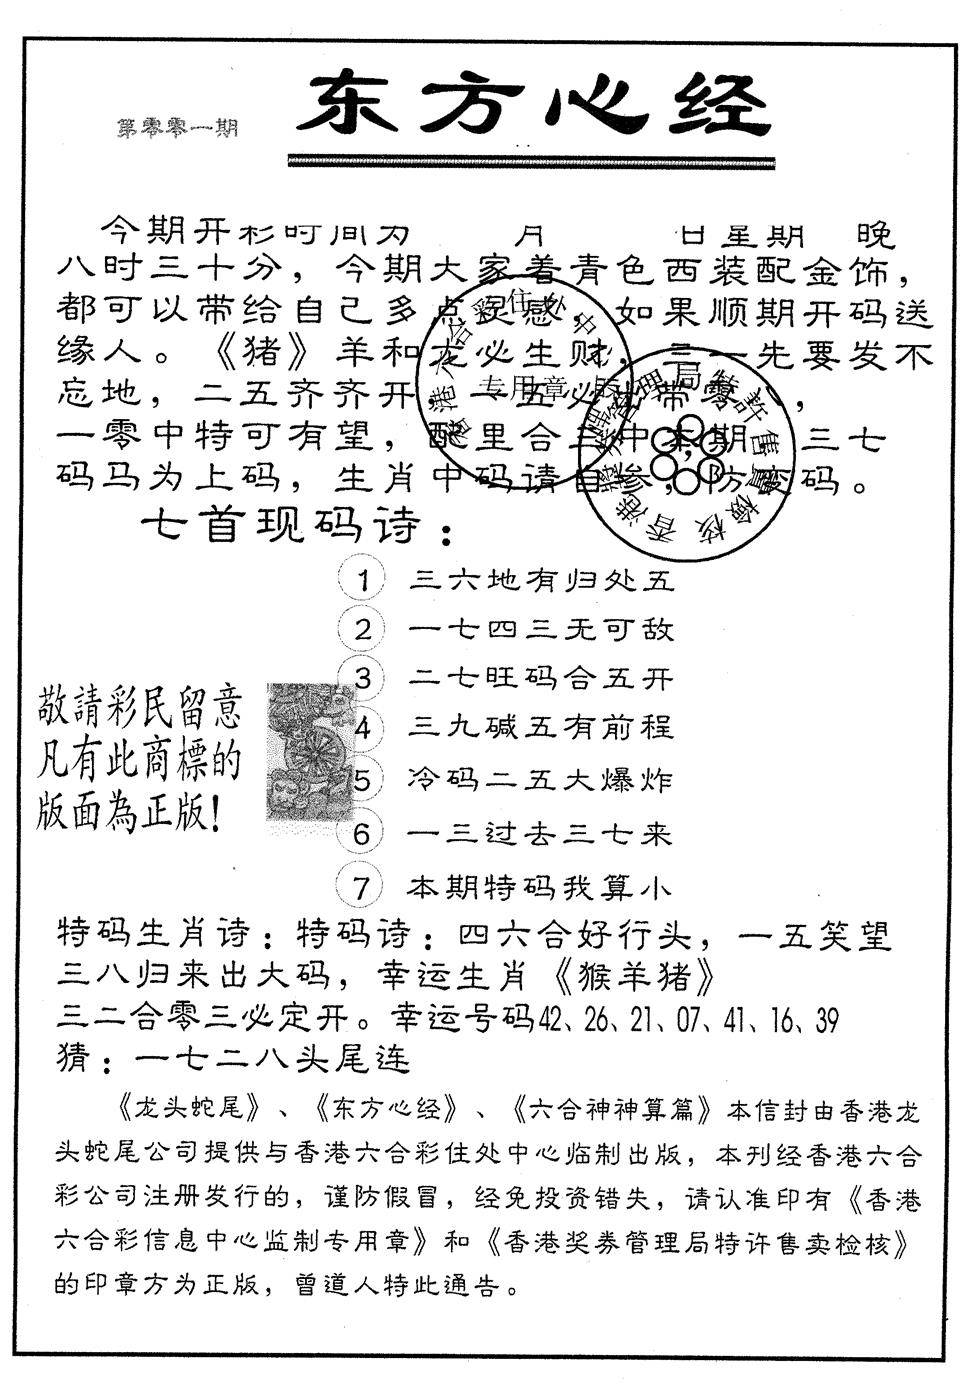 东方心经
第零零一期
今期开彩时间为 月 日星期 晚
八时三十分，今期大家着青色西装配金饰，
都可以带给自己多点灵感，如果顺期开码送
缘人。《猪》羊和龙必生财，三一先要发不
忘地，二五齐齐开，一五必 带零 ，
一零中特可有望，配里合三中本期，三七
码马为上码，生肖中码请自参，防 码。
专用章
七首现码诗：
1 三六地有归处五
2 一七四三无可敌
3 二七旺码合五开
4 三九碱五有前程
5 冷码二五大爆炸
6 一三过去三七来
7 本期特码我算小
敬請彩民留意
凡有此商標的
版面為正版！
特码生肖诗：特码诗：四六合好行头，一五笑望
三八归来出大码，幸运生肖《猴羊猪》
三二合零三必定开。幸运号码42、26、21、07、41、16、39
猜：一七二八头尾连
《龙头蛇尾》、《东方心经》、《六合神神算篇》本信封由香港龙
头蛇尾公司提供与香港六合彩住处中心临制出版，本刊经香港六合
彩公司注册发行的，谨防假冒，经免投资错失，请认准印有《香港
六合彩信息中心监制专用章》和《香港奖券管理局特许售卖检核》
的印章方为正版，曾道人特此通告。